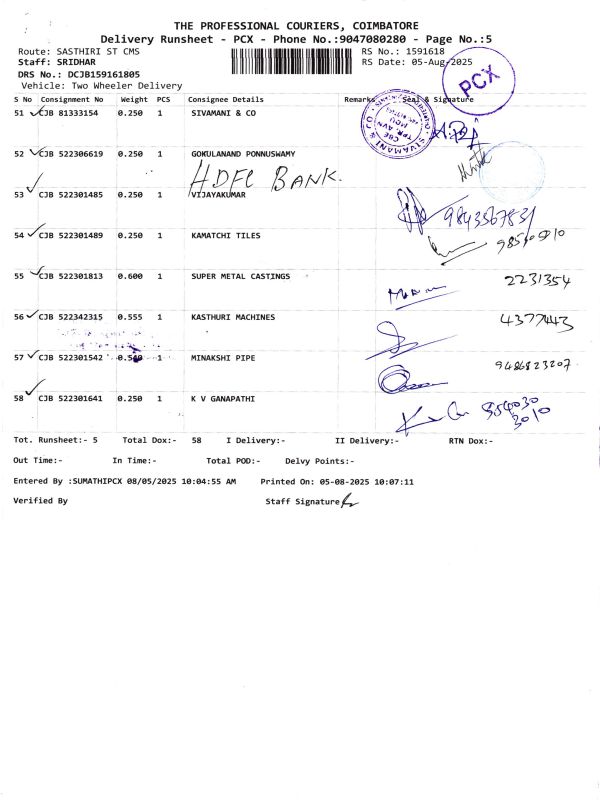 THE PROFESSIONAL COURIERS, COIMBATORE
Delivery Runsheet - PCX - Phone No.:9047080280 - Page No.:5
Route: SASTHIRI ST CMS RS No.: 1591618
Staff: SRIDHAR RS Date: 05-Aug-2025
DRS No.: DCJB159161805
Vehicle: Two Wheeler Delivery
PCX
S No Consignment No Weight PCS Consignee Details Remarks Seal & Signature
51 CJB 81333154 0.250 1 SIVAMANI & CO
SIVAMANI & CO
52 CJB 522306619 0.250 1 GOKULANAND PONNUSWAMY
HDFC BANK.
53 CJB 522301485 0.250 1 VIJAYAKUMAR
9843567831
54 CJB 522301489 0.250 1 KAMATCHI TILES
55 CJB 522301813 0.600 1 SUPER METAL CASTINGS 2231354
56 CJB 522342315 0.555 1 KASTHURI MACHINES 4377443
57 CJB 522301542 1 MINAKSHI PIPE 9486823207
58 CJB 522301641 0.250 1 K V GANAPATHI
Tot. Runsheet:- 5 Total Dox:- 58 I Delivery:- II Delivery:- RTN Dox:-
Out Time:- In Time:- Total POD:- Delvy Points:-
Entered By :SUMATHIPCX 08/05/2025 10:04:55 AM Printed On: 05-08-2025 10:07:11
Verified By Staff Signature